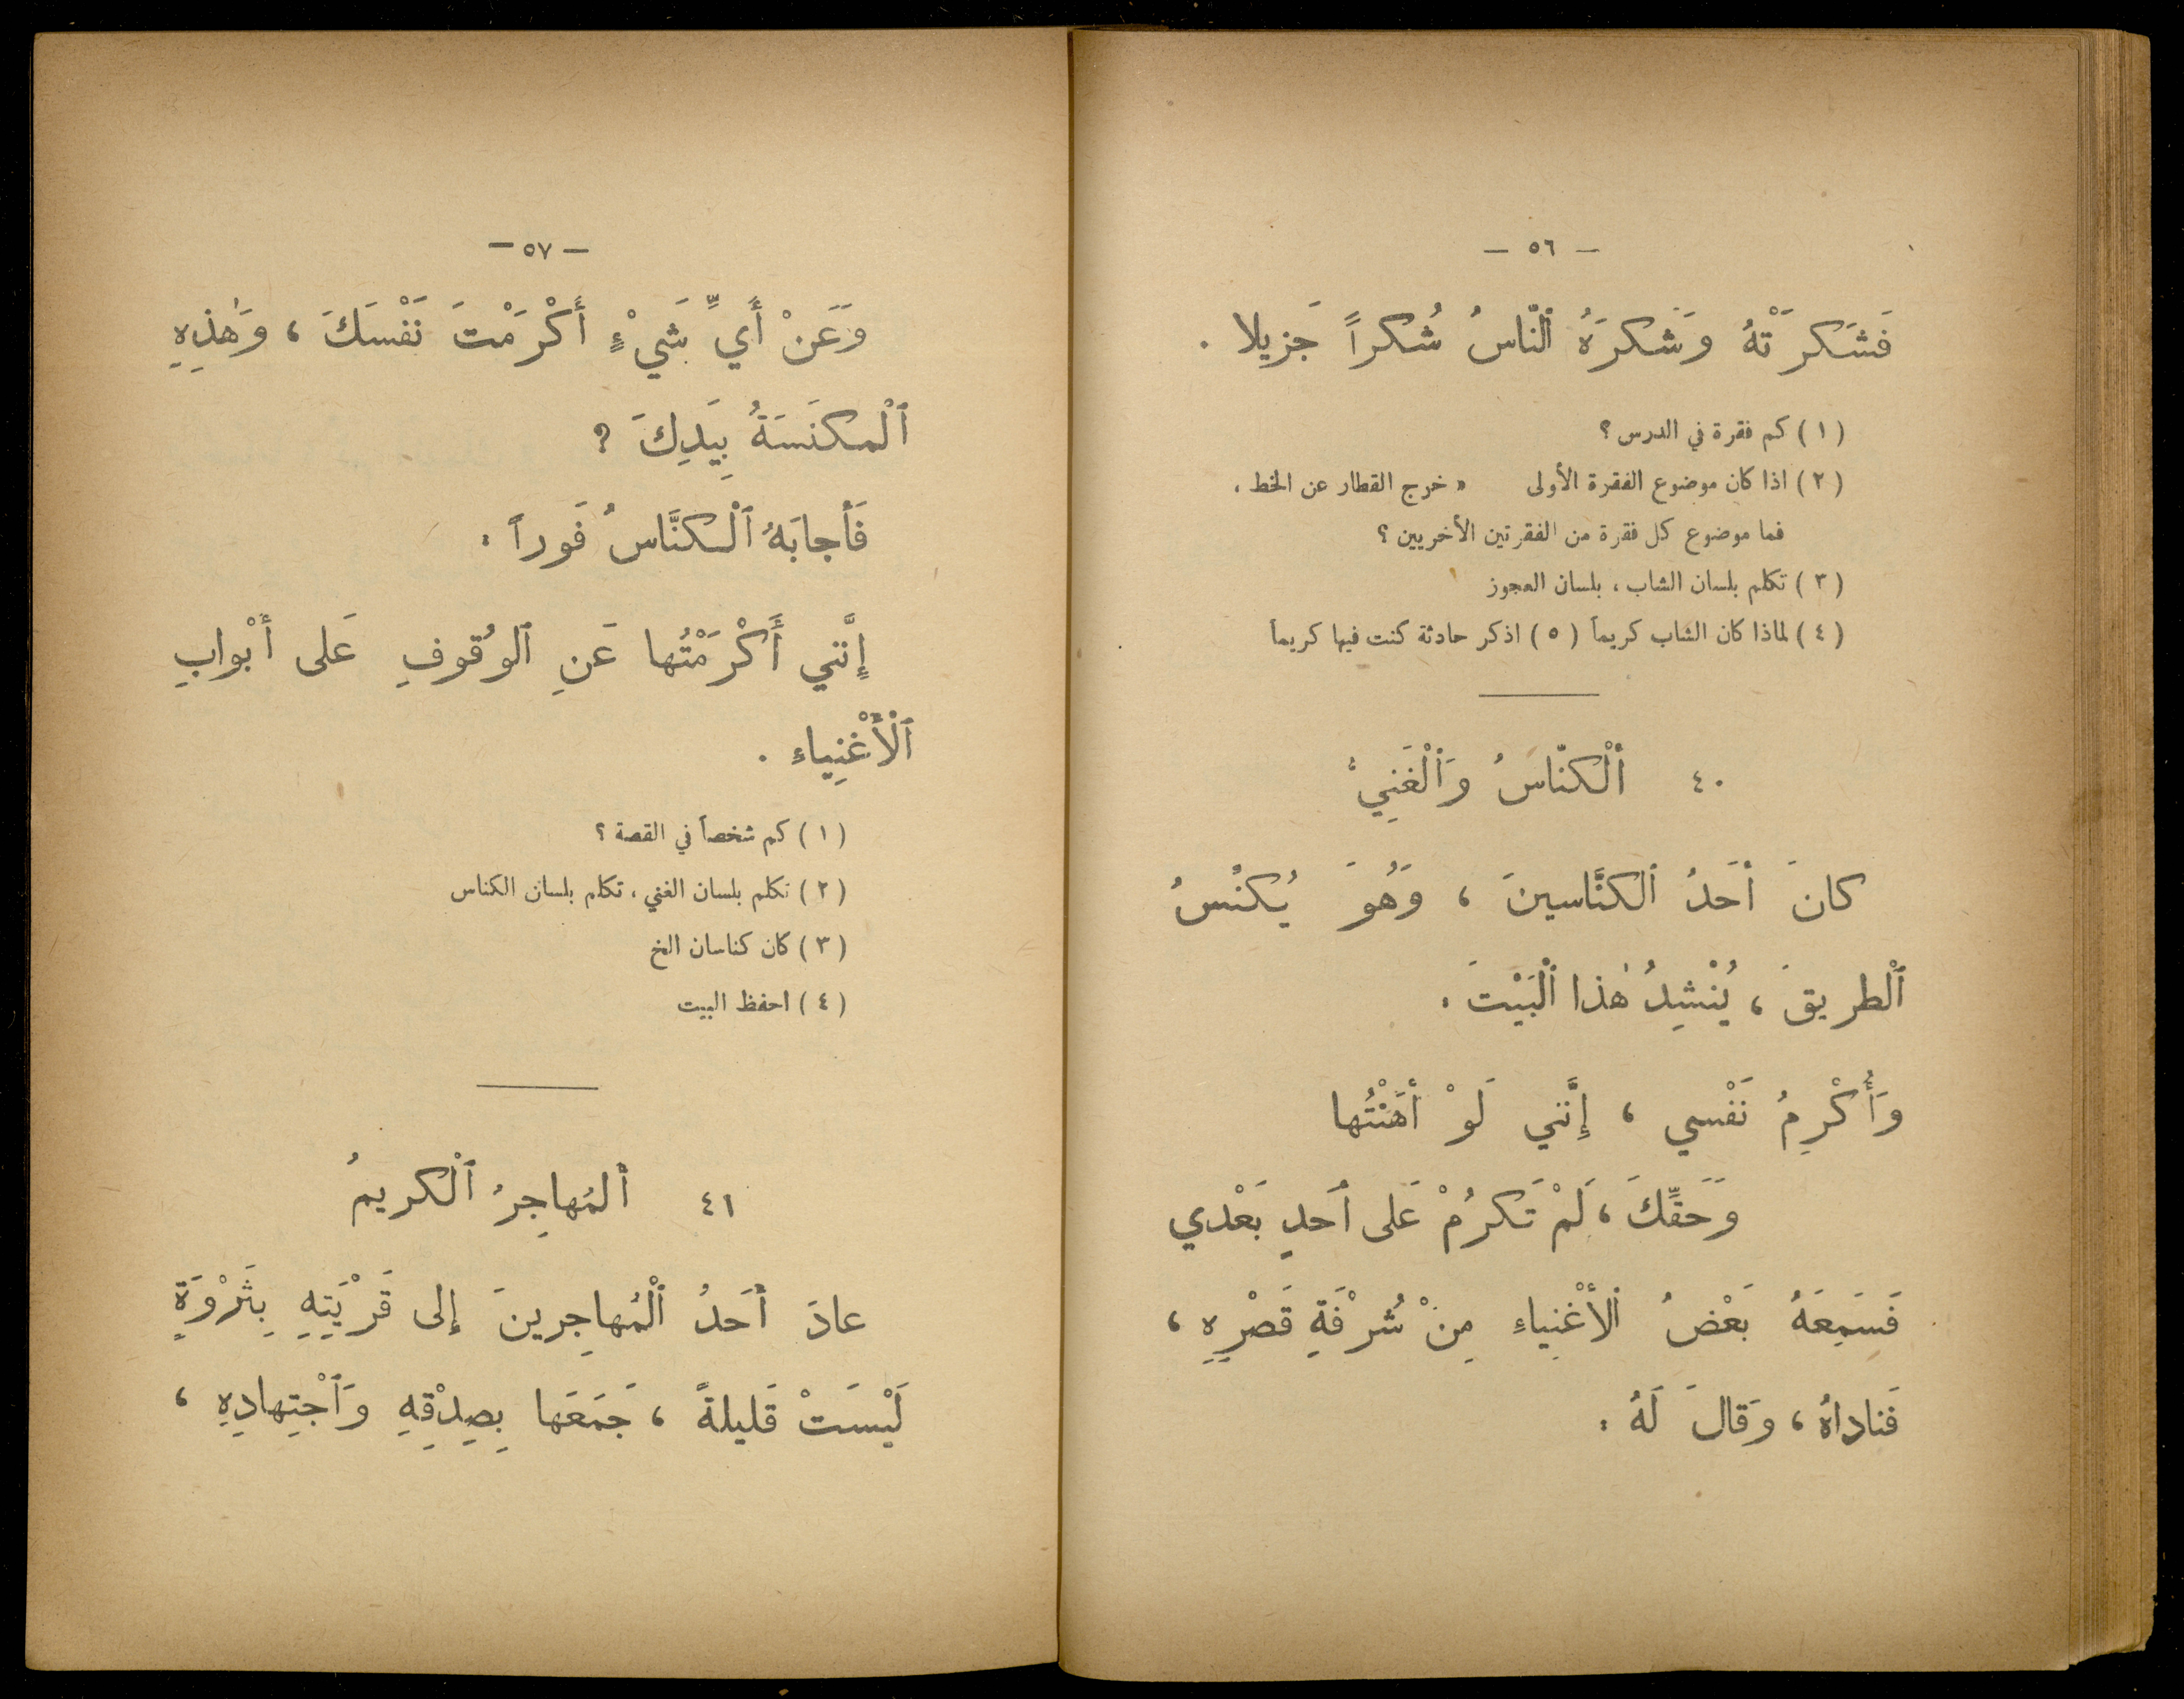 — ٥٦ —
فَشَكَرَتْهُ وَشَكَرَهُ ٱلنّاسُ شُكراً جَزيلا .
( ١ ) كم فقرة في الدرس ؟
( ٢ ) اذا كان موضوع الفقرة الأولى « خرج القطار عن الخط ،
فما موضوع كل فقرة من الفقرتين الأخريين ؟
( ٣ ) تكلم بلسان الشاب ، بلسان العجوز
( ٤ ) لماذا كان الشاب كريماً ( ٥ ) اذكر حادثة كنت فيها كريماً
٤٠ ٱلْكنّاسُ وَٱلْغَنِيُّ
كانَ أحَدُ ٱلكَنَّاسينَ ، وَهُوَ يُكنُسُ
ٱلْطريقَ ، يُنْشِدُ هٰذا ٱلْبَيْتَ .
وَأُكْرِمُ نَفْسي ، إِنَّني لَوْ أهَنْتُها
وَحَقِّكَ ، لَمْ تَكرُمْ عَلى أحَدٍ بَعْدي
فَسَمِعَهُ بَعْضُ ٱلأغْنِياءِ مِنْ شُرْفَةِ قَصْرِهِ ،
فَناداهُ ، وَقالَ لَهُ :
— ٥٧ —
وَعَنْ أَيِّ شَيْءٍ أَكْرَمْتَ نَفْسَكَ ، وَهٰذِهِ
ٱلْمكنَسَةُ بِيَدِكَ ؟
فَأجابَهُ ٱلْكنَّاسُ فَوراً :
إِنَّني أَكْرَمْتُها عَنِ ٱلوُقوفِ عَلى أَبْوابِ
ٱلْأَغْنِياءِ .
( ١ ) كم شخصاً في القصة ؟
( ٢ ) تكلم بلسان الغني ، تكلم بلسان الكناس
( ٣ ) كان كناسان الخ
( ٤ ) احفظ البيت
٤١ ألمُهاجِرُ ٱلْكريمُ
عادَ أَحَدُ ٱلْمُهاجِرينَ إِلى قَرْيَتِهِ بِثَرْوَةٍ
لَيْسَتْ قَليلةً ، جَمَعَها بِصِدْقِهِ وَٱجْتِهادِهِ ،